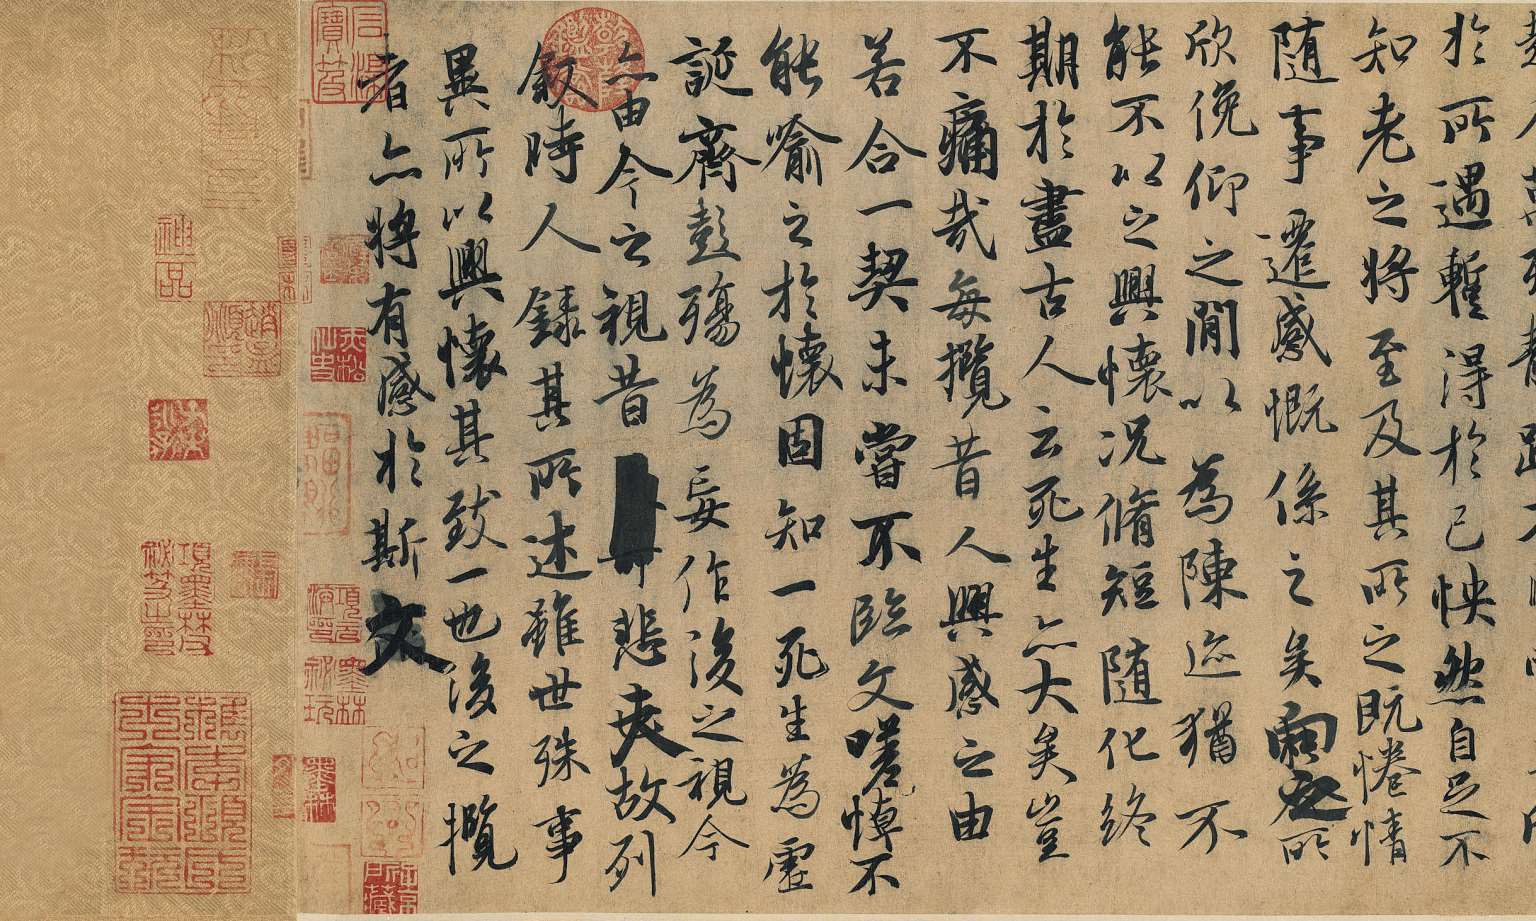 於所遇蹔得於己怏然自足不
知老之將至及其所之既惓情
随事遷感慨係之矣向之所
欣俛仰之閒以為陳迹猶不
能不以之興懷況脩短随化終
期於盡古人云死生亦大矣豈
不痛哉每攬昔人興感之由
若合一契未嘗不臨文嗟悼不
能喻之於懷固知一死生為虛
誕齊彭殤為妄作後之視今
亦由今之視昔悲夫故列
敘時人錄其所述雖世殊事
異所以興懷其致一也後之攬
者亦將有感於斯文
神品
項墨林父祕笈之印